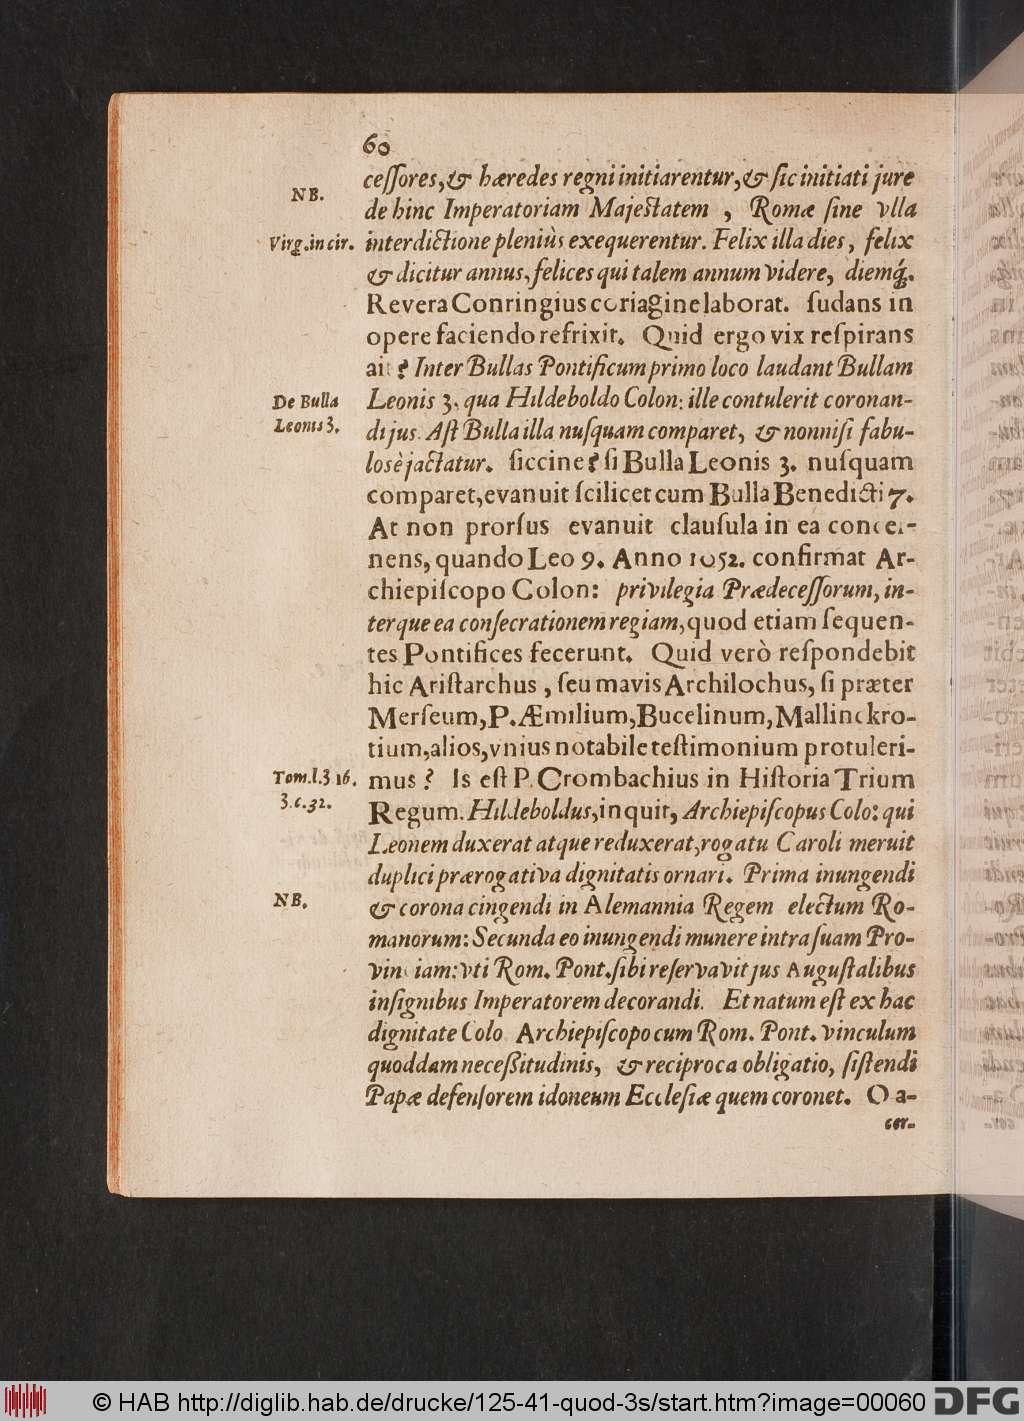 60
ceſſores, & hæredes regni initiarentur, & ſic initiati jure
NB.
de hinc Imperatoriam Majeſtatem , Romæ ſine vlla
Virg. in cir.
interdictione pleniùs exequerentur. Felix illa dies, felix
& dicitur annus, felices qui talem annum videre, diemq́;.
Revera Conringius coriagine laborat. ſudans in
opere faciendo refrixit. Quid ergo vix reſpirans
ait ? Inter Bullas Pontificum primo loco laudant Bullam
De Bulla
Leonis 3. qua Hildeboldo Colon: ille contulerit coronan-
Leonis 3.
di jus. Aſt Bulla illa nuſquam comparet, & nonniſi fabu-
losè jactatur. ſiccine? ſi Bulla Leonis 3. nuſquam
comparet, evanuit ſcilicet cum Bulla Benedicti 7.
At non prorſus evanuit clauſula in ea concer-
nens, quando Leo 9. Anno 1052. confirmat Ar-
chiepiſcopo Colon: privilegia Prædeceſſorum, in-
terque ea conſecrationem regiam, quod etiam ſequen-
tes Pontifices fecerunt. Quid verò reſpondebit
hic Ariſtarchus, ſeu mavis Archilochus, ſi præter
Merſeum, P. Æmilium, Bucelinum, Mallinckro-
tium, alios, vnius notabile teſtimonium protuleri-
Tom. l. 3 16.
mus? Is eſt P. Crombachius in Hiſtoria Trium
3. c. 32.
Regum. Hildeboldus, inquit, Archiepiſcopus Colo: qui
Leonem duxerat atque reduxerat, rogatu Caroli meruit
duplici prærogativa dignitatis ornari. Prima inungendi
NB.
& corona cingendi in Alemannia Regem electum Ro-
manorum: Secunda eo inungendi munere intra ſuam Pro-
vinciam: vti Rom. Pont. ſibi reſervavit jus Auguſtalibus
inſignibus Imperatorem decorandi. Et natum eſt ex hac
dignitate Colo. Archiepiſcopo cum Rom. Pont. vinculum
quoddam neceßitudinis, & reciproca obligatio, ſiſtendi
Papæ defenſorem idoneum Eccleſiæ quem coronet. O a-
cer-
© HAB http://diglib.hab.de/drucke/125-41-quod-3s/start.htm?image=00060
DFG